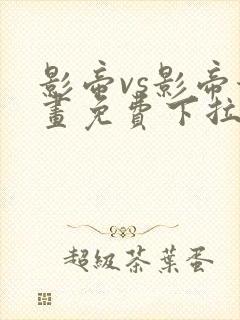 影帝vs影帝
畫免費下拉
超級茶葉蛋